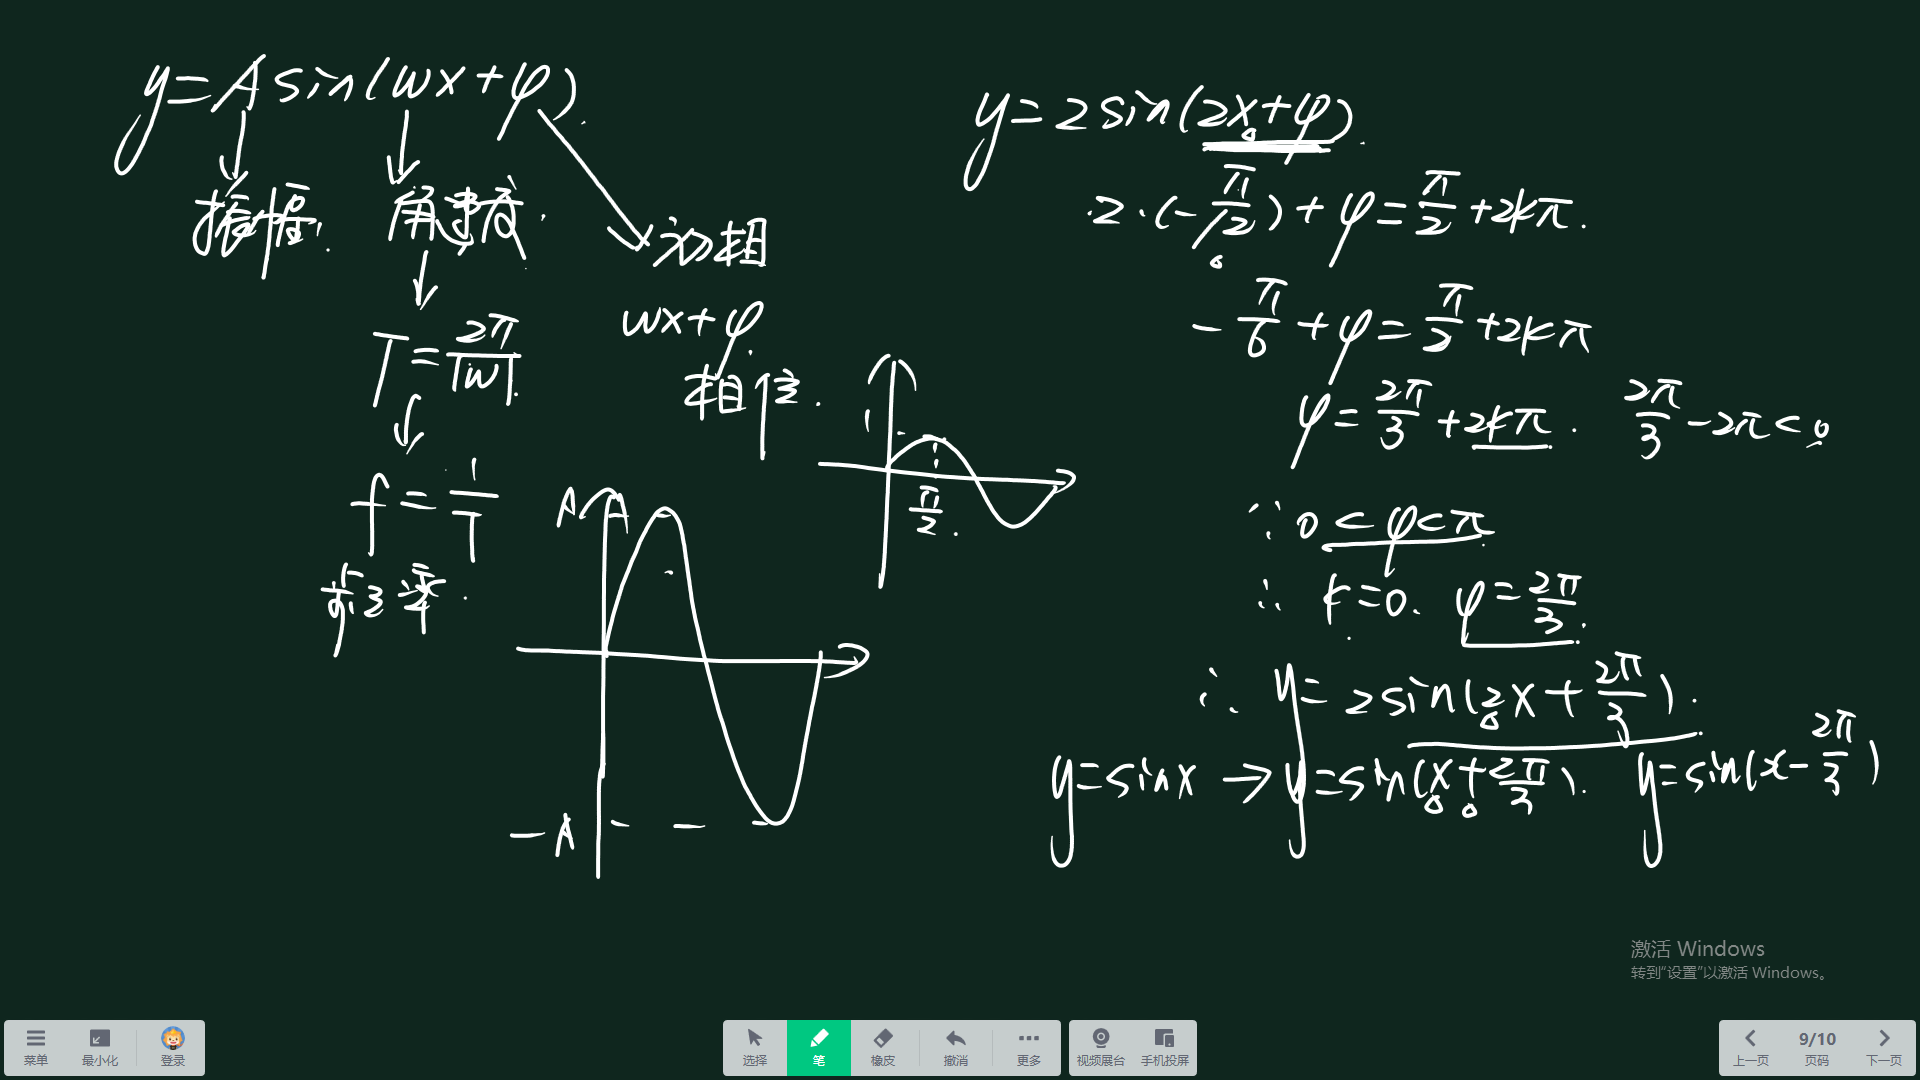 y=Asin(wx+φ).
振幅. 角速度. 初相
T=2π/|w|.
wx+φ.
相位.
f=1/T
频率.
A
-A
1
π/2.
y=2sin(2x+φ).
2·(-π/12)+φ=π/2+2kπ.
-π/6+φ=π/2+2kπ
φ=2π/3+2kπ. 2π/3-2π<0
∵0<φ<π
∴k=0. φ=2π/3.
∴y=2sin(2x+2π/3).
y=sinx→y=sin(x+2π/3). y=sin(x-2π/3)
激活 Windows
转到“设置”以激活 Windows。
菜单 最小化 登录 选择 笔 橡皮 撤消 更多 视频展台 手机投屏 上一页 9/10 页码 下一页